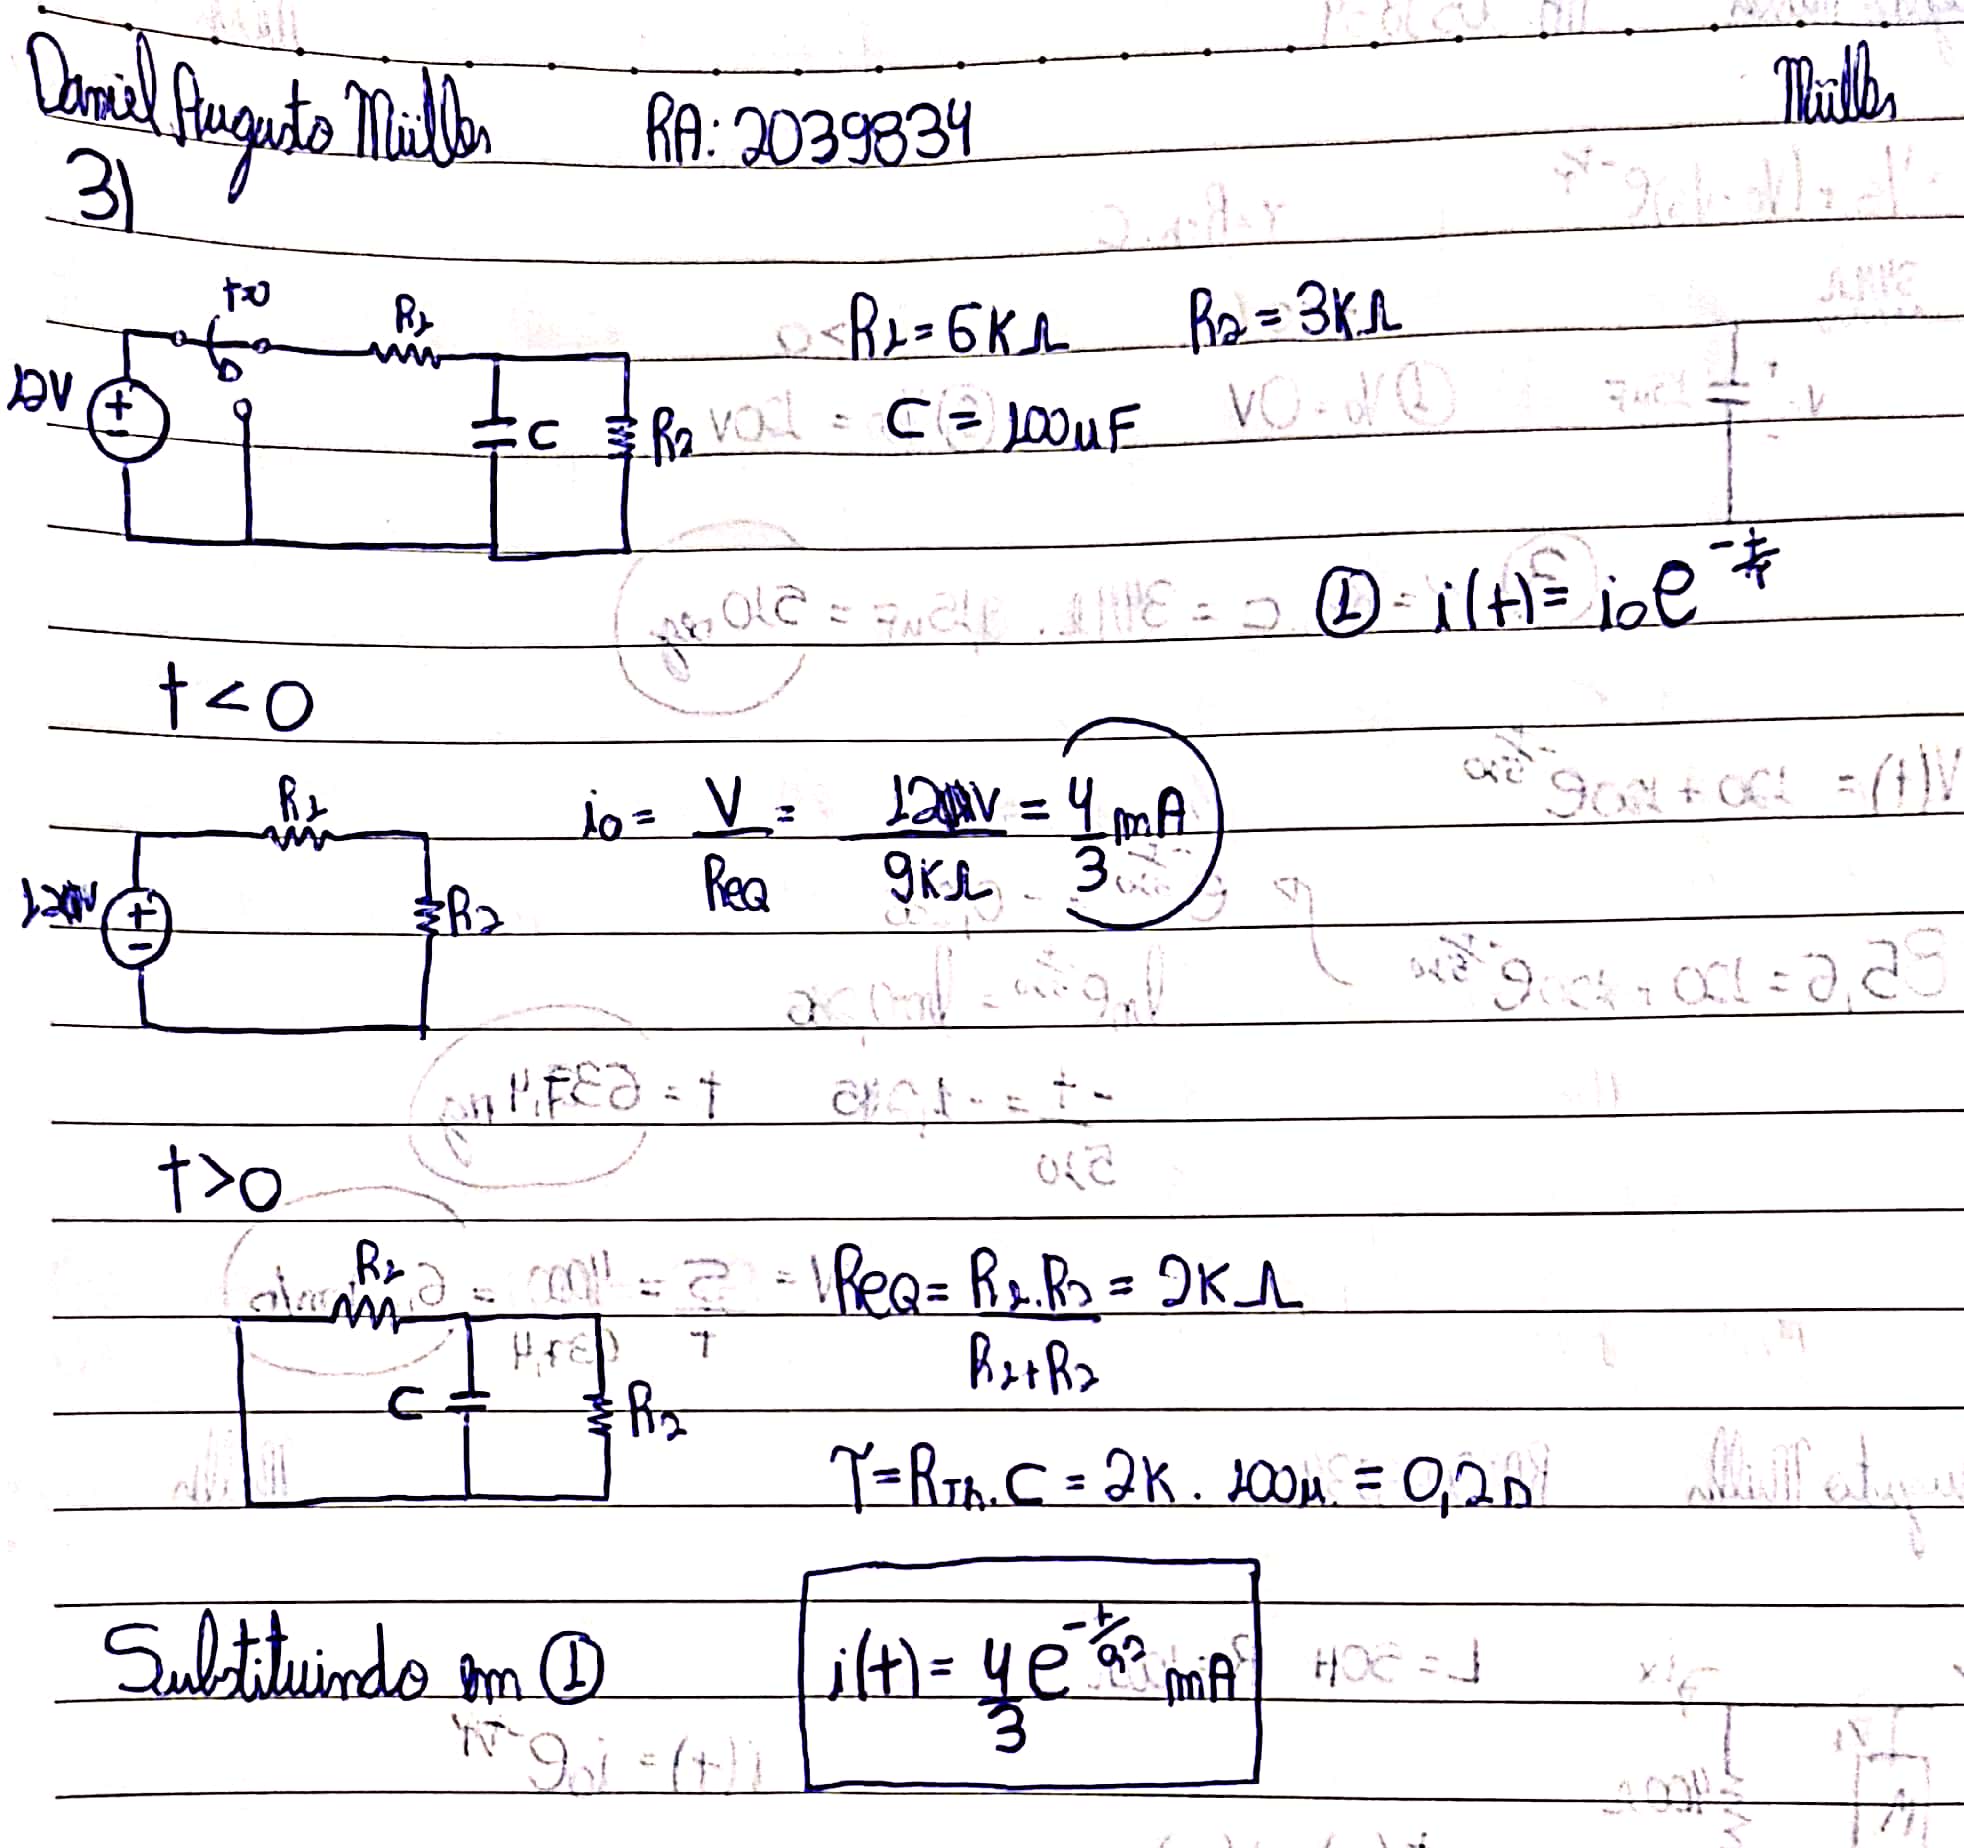 Daniel Augusto Müller RA: 2039834 Müller
3)
t=0
R1
R1 = 6KΩ R2 = 3KΩ
12V + -
C R2
C = 100uF
① i(t) = i0e^-t/τ
t < 0
R1
i0 = V/ReQ = 12V/9KΩ = 4/3 mA
12V + -
R2
t > 0
R1
ReQ = R1.R2/R1+R2 = 2KΩ
C R2
τ = RTh.C = 2K . 100µ = 0,2s
Substituindo em ① i(t) = 4/3 e^-t/0,2 mA